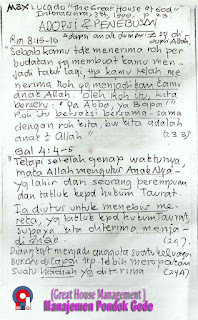 MAX Lucado "The Great House of God"
ADOPSI & PENEBUSAN
Rm 8:15-16
"Sebab kamu tdk menerima roh per
budakan yg membuat kamu men-
jadi takut lagi, ttp kamu telah me
nerima Roh yg menjadikan kamu
anak Allah. oleh Roh itu kita
berseru: "ya Abba, ya Bapa!"
Roh itu bersaksi bersama-sama
dengan roh kita, bw kita adalah
anak2 Allah"
Gal 4:4-5
"Tetapi setelah genap waktunya,
maka Allah mengutus AnakNya
yg lahir dari seorang perempuan
dan takluk kpd hukum Taurat.
Ia diutus untuk menebus me
reka, yg takluk kpd hukum Taurat,
supaya kita diterima menja-
di anak"
menjadi anggota suatu keluarga
bukan dicapai ttp lebih merupakan
suatu hadiah yg diterima
(Great House Management)
Manajemen Pondok Gede